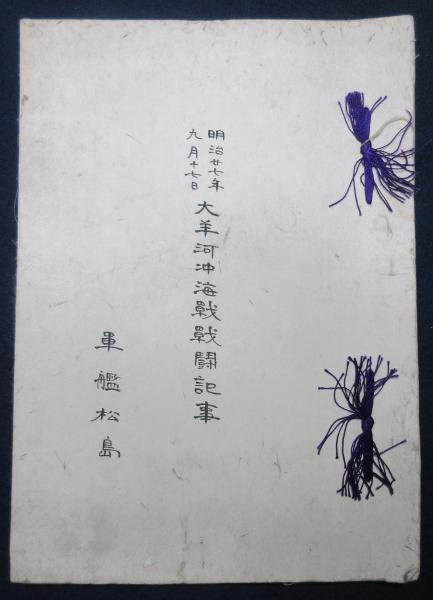 明治廿七年
九月十七日
大羊河沖海戰戰鬪記事
軍艦松島